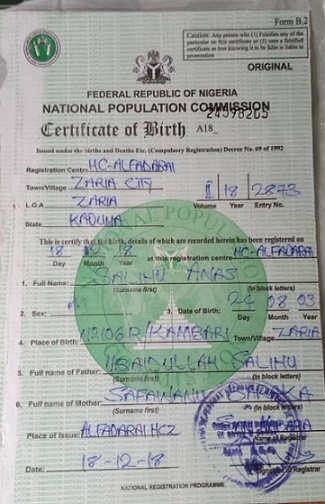 Form B.2
Caution: Any person who (1) Falsifies any of the
particular on this certificate or (2) uses a falsified
certificate as true knowing it to be false is liable to
prosecution
ORIGINAL
FEDERAL REPUBLIC OF NIGERIA
NATIONAL POPULATION COMMISSION
24598265
Certificate of Birth A18_
Issued under the Births and Deaths Etc. (Compulsory Registration) Decree No. 69 of 1992
Registration Centre HC-ALFADARAI
Town/Village ZARIA CITY II 18 2873
L.G.A ZARIA Volume Year Entry No.
State KADUNA
This is certify that the birth, details of which are recorded herein has been registered on
18 12 18 at this registration centre HC-ALFADARAI
Day Month Year
1. Full Name: SALIHU ANAS
(Surname first) (In block letters)
2. Sex: M 3. Date of Birth: 24 08 03
Day Month Year
4. Place of Birth: No 106 R/KAMBARI Town/Village ZARIA
5. Full name of Father: UBAIDULLAH SALIHU
(Surname first) (In block letters)
6. Full name of Mother:
(Surname first) (In block letters)
Place of Issue: ALFADARAI HCZ
Name of Registrar
Date: 18-12-18
Signature of Registrar
NATIONAL REGISTRATION PROGRAMME